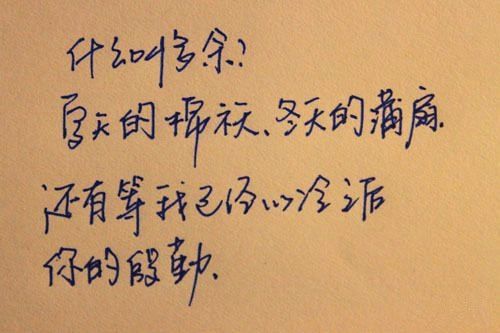 什么叫多余?
夏天的棉袄、冬天的蒲扇.
还有等我已经心冷之后
你的殷勤.